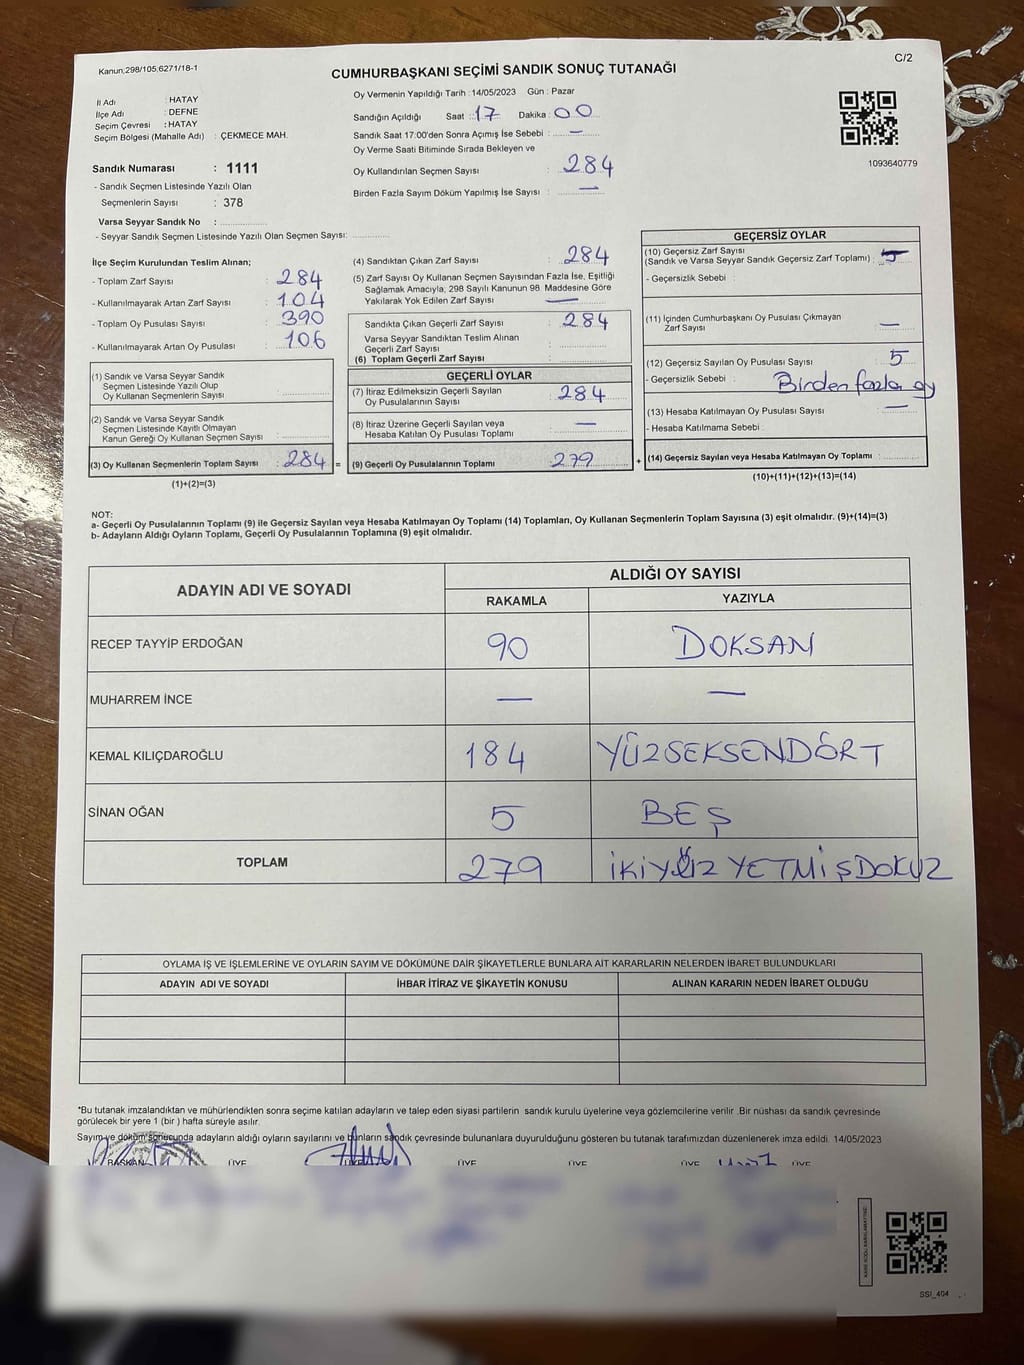 Kanun;298/105;6271/18-1
C/2
CUMHURBAŞKANI SEÇİMİ SANDIK SONUÇ TUTANAĞI
İl Adı : HATAY
İlçe Adı : DEFNE
Seçim Çevresi : HATAY
Seçim Bölgesi (Mahalle Adı) : ÇEKMECE MAH.
Sandık Numarası : 1111
- Sandık Seçmen Listesinde Yazılı Olan
Seçmenlerin Sayısı : 378
Varsa Seyyar Sandık No :
- Seyyar Sandık Seçmen Listesinde Yazılı Olan Seçmen Sayısı:
Oy Vermenin Yapıldığı Tarih :14/05/2023 Gün : Pazar
Sandığın Açıldığı Saat : 17 Dakika : 00
Sandık Saat 17:00'den Sonra Açımış İse Sebebi : —
Oy Verme Saati Bitiminde Sırada Bekleyen ve
Oy Kullandırılan Seçmen Sayısı : 284
Birden Fazla Sayım Döküm Yapılmış İse Sayısı : —
1093640779
İlçe Seçim Kurulundan Teslim Alınan;
- Toplam Zarf Sayısı : 284
- Kullanılmayarak Artan Zarf Sayısı : 104
- Toplam Oy Pusulası Sayısı : 390
- Kullanılmayarak Artan Oy Pusulası : 106
(1) Sandık ve Varsa Seyyar Sandık
Seçmen Listesinde Yazılı Olup
Oy Kullanan Seçmenlerin Sayısı :
(2) Sandık ve Varsa Seyyar Sandık
Seçmen Listesinde Kayıtlı Olmayan
Kanun Gereği Oy Kullanan Seçmen Sayısı :
(3) Oy Kullanan Seçmenlerin Toplam Sayısı : 284 =
(1)+(2)=(3)
(4) Sandıktan Çıkan Zarf Sayısı : 284
(5) Zarf Sayısı Oy Kullanan Seçmen Sayısından Fazla İse, Eşitliği
Sağlamak Amacıyla; 298 Sayılı Kanunun 98. Maddesine Göre
Yakılarak Yok Edilen Zarf Sayısı : —
Sandıkta Çıkan Geçerli Zarf Sayısı : 284
Varsa Seyyar Sandıktan Teslim Alınan
Geçerli Zarf Sayısı :
(6) Toplam Geçerli Zarf Sayısı :
GEÇERLİ OYLAR
(7) İtiraz Edilmeksizin Geçerli Sayılan
Oy Pusulalarının Sayısı : 284
(8) İtiraz Üzerine Geçerli Sayılan veya
Hesaba Katılan Oy Pusulası Toplamı : —
(9) Geçerli Oy Pusulalarının Toplamı : 279 +
GEÇERSİZ OYLAR
(10) Geçersiz Zarf Sayısı
(Sandık ve Varsa Seyyar Sandık Geçersiz Zarf Toplamı) :
- Geçersizlik Sebebi :
(11) İçinden Cumhurbaşkanı Oy Pusulası Çıkmayan
Zarf Sayısı : —
(12) Geçersiz Sayılan Oy Pusulası Sayısı : 5
- Geçersizlik Sebebi : Birden fazla oy
(13) Hesaba Katılmayan Oy Pusulası Sayısı : —
- Hesaba Katılmama Sebebi :
(14) Geçersiz Sayılan veya Hesaba Katılmayan Oy Toplamı :
(10)+(11)+(12)+(13)=(14)
NOT:
a- Geçerli Oy Pusulalarının Toplamı (9) ile Geçersiz Sayılan veya Hesaba Katılmayan Oy Toplamı (14) Toplamları, Oy Kullanan Seçmenlerin Toplam Sayısına (3) eşit olmalıdır. (9)+(14)=(3)
b- Adayların Aldığı Oyların Toplamı, Geçerli Oy Pusulalarının Toplamına (9) eşit olmalıdır.
ADAYIN ADI VE SOYADI
ALDIĞI OY SAYISI
RAKAMLA YAZIYLA
RECEP TAYYİP ERDOĞAN 90 DOKSAN
MUHARREM İNCE — —
KEMAL KILIÇDAROĞLU 184 YÜZSEKSENDÖRT
SİNAN OĞAN 5 BEŞ
TOPLAM 279 İKİYÜZ YETMİŞDOKUZ
OYLAMA İŞ VE İŞLEMLERİNE VE OYLARIN SAYIM VE DÖKÜMÜNE DAİR ŞİKAYETLERLE BUNLARA AİT KARARLARIN NELERDEN İBARET BULUNDUKLARI
ADAYIN ADI VE SOYADI İHBAR İTİRAZ VE ŞİKAYETİN KONUSU ALINAN KARARIN NEDEN İBARET OLDUĞU
*Bu tutanak imzalandıktan ve mühürlendikten sonra seçime katılan adayların ve talep eden siyasi partilerin sandık kurulu üyelerine veya gözlemcilerine verilir .Bir nüshası da sandık çevresinde
görülecek bir yere 1 (bir ) hafta süreyle asılır.
Sayım ve döküm sonucunda adayların aldığı oyların sayılarını ve bunların sandık çevresinde bulunanlara duyurulduğunu gösteren bu tutanak tarafımızdan düzenlenerek imza edildi. 14/05/2023
BAŞKAN ÜYE ÜYE ÜYE ÜYE ÜYE ÜYE
SSI_404